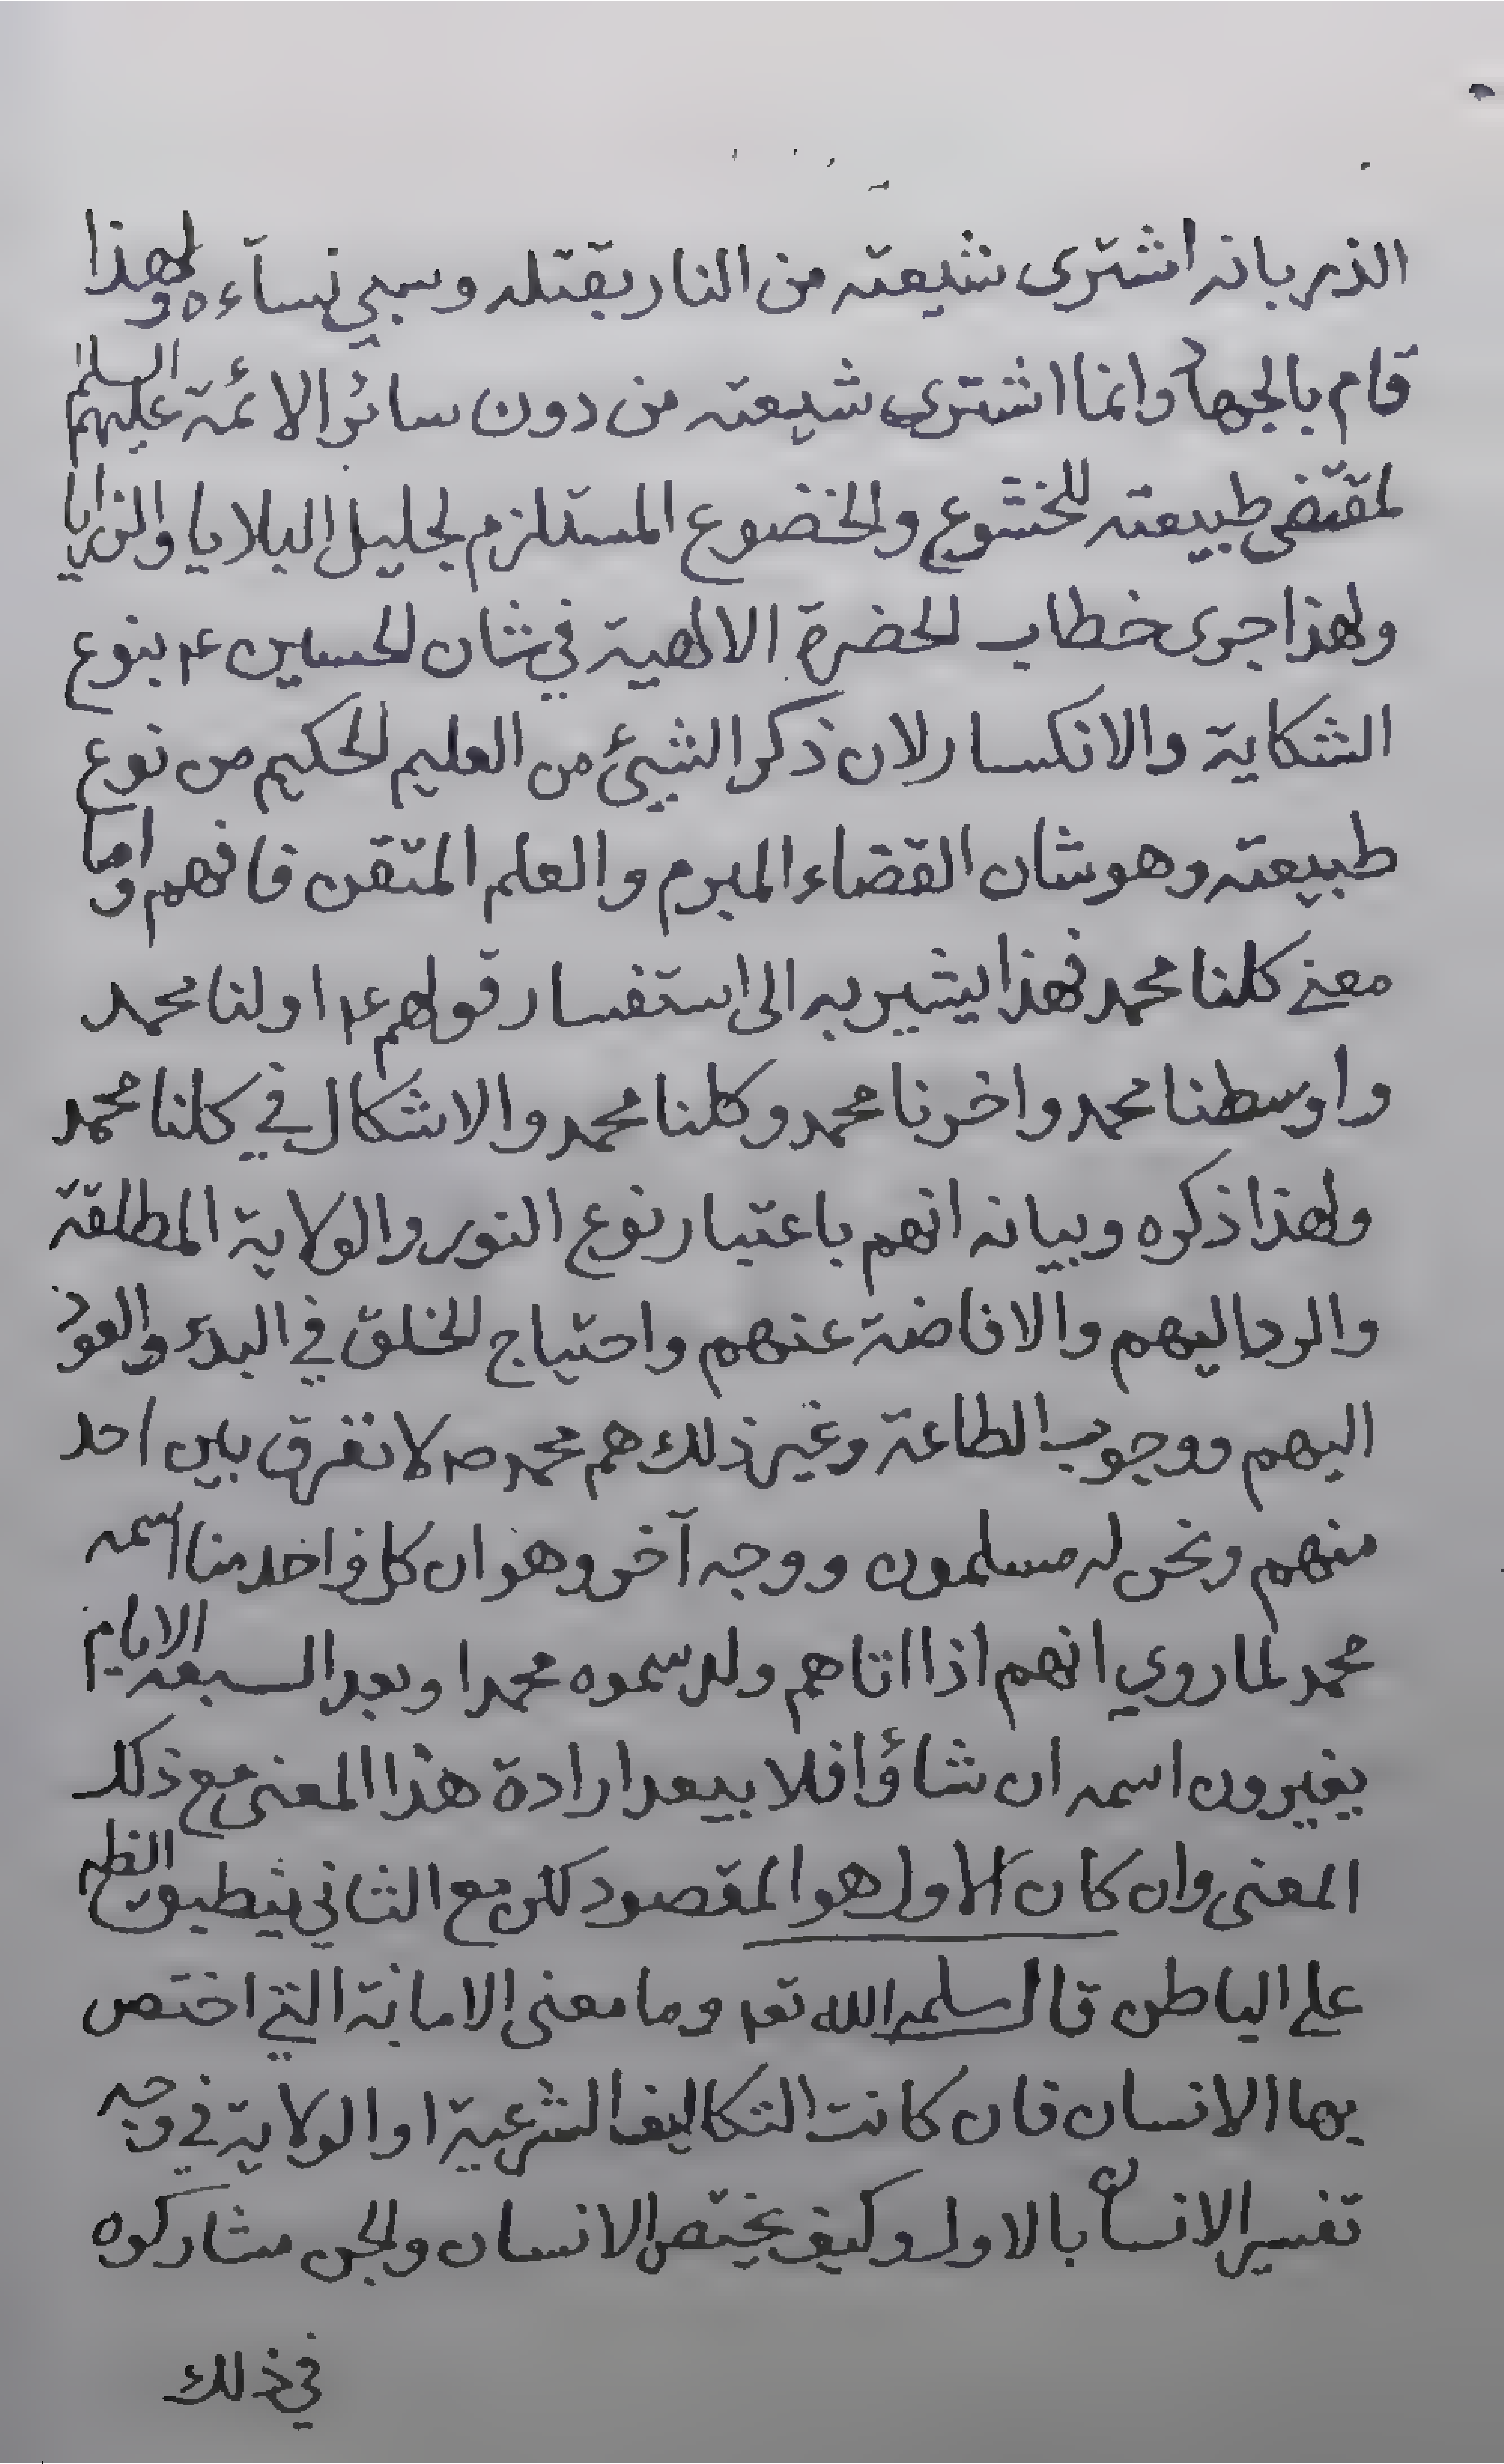 الذر بانه اشترى شيعته من النار بقتله وسبي نسآءه ولهذا
قام بالجهاد وانما اشترى شيعته من دون سائر الائمة عليهم السلم
لمقتضى طبيعته للخشوع والخضوع المستلزم لجليل البلايا والرزايا
ولهذا جرى خطاب الحضرة الالهية في شان الحسين ع بنوع
الشكاية والانكسار لان ذكر الشيئ من العليم الحكيم من نوع
طبيعته وهو شان القضاء المبرم والعلم المتقن فافهم واما
معنى كلنا محمد فهذا يشير به الى استفسار قولهم ع اولنا محمد
واوسطنا محمد واخرنا محمد وكلنا محمد والاشكال في كلنا محمد
ولهذا ذكره وبيانه انهم باعتبار نوع النور والولاية المطلقة
والرد اليهم والافاضة عنهم واحتياج الخلق في البدء والعود
اليهم ووجوب الطاعة وغير ذلك هم محمد ص لا نفرق بين احد
منهم ونحن له مسلمون ووجه آخر وهو ان كل واحد منا اسمه
محمد لما روي انهم اذا اتاهم ولد سموه محمدا وبعد السبعة الايام
يغيرون اسمه ان شاؤا فلا يبعد ارادة هذا المعنى مع ذلك
المعنى وان كان الاول هو المقصود لكن مع الثاني ينطبق الظاهر
على الباطن قال سلمه الله تع وما معنى الامانة التي اختص
بها الانسان فان كانت التكاليف الشرعية او الولاية في وجه
تفسير الانسان بالاول وكيف يختص الانسان والجن مشاركوه
في ذلك